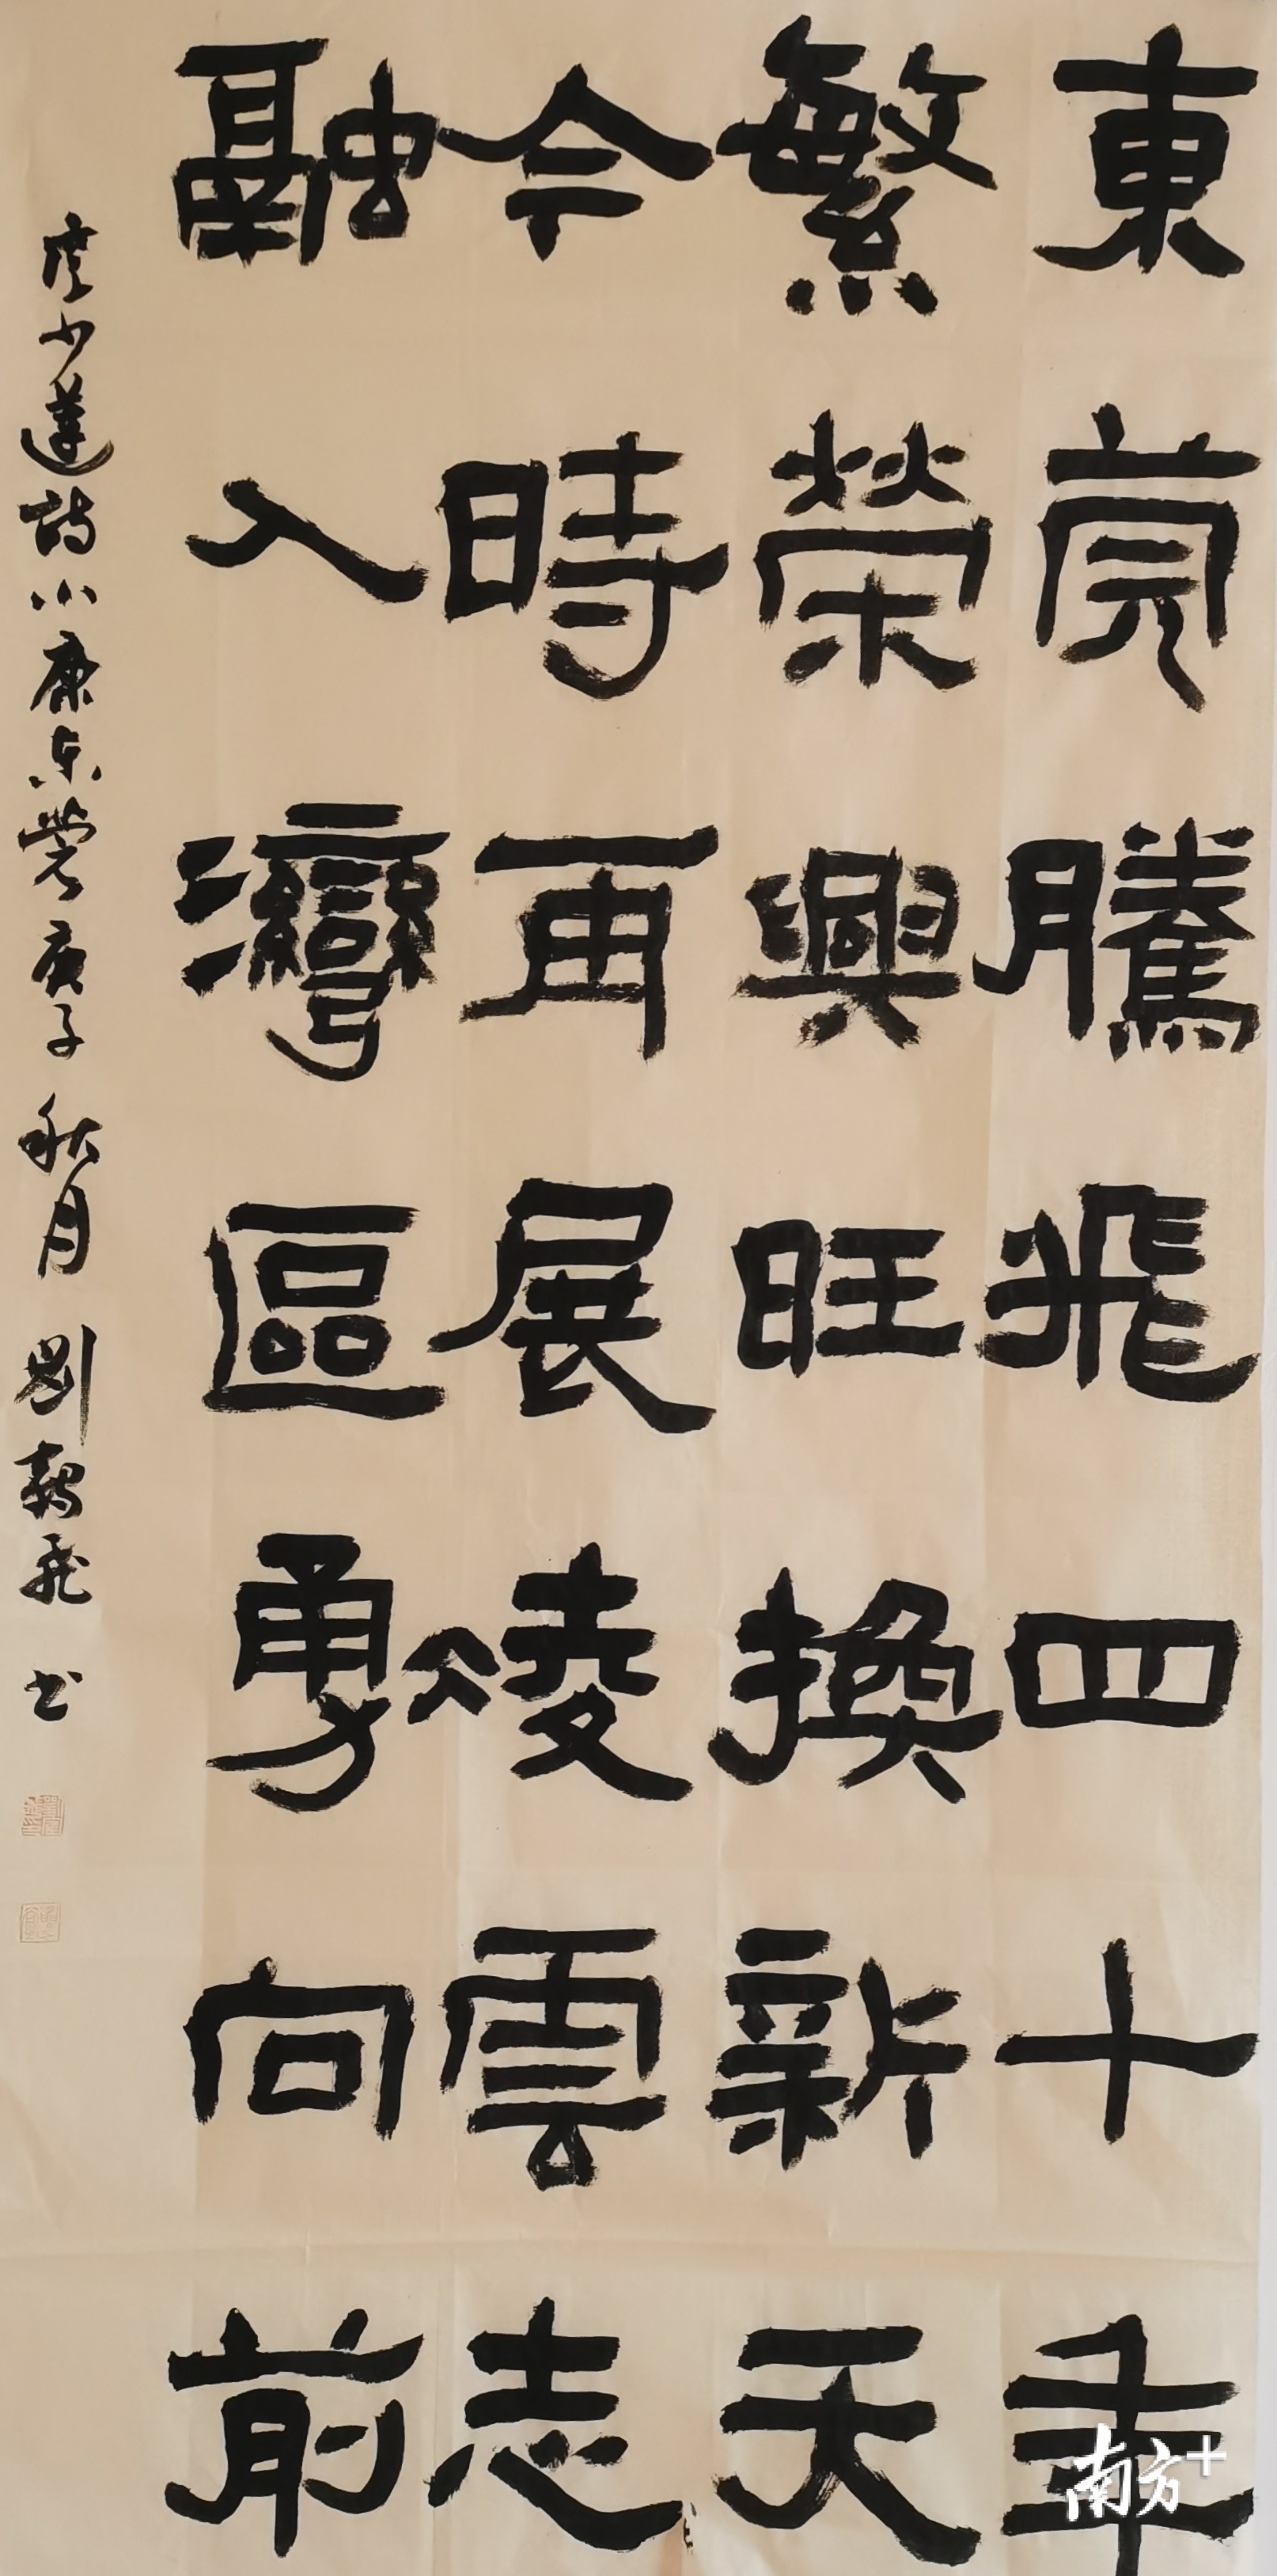 東莞騰飛四十年
繁榮興旺換新天
今時再展凌雲志
融入灣區勇向前
少蓮詩小康东莞庚子秋月劉飛书
南方+